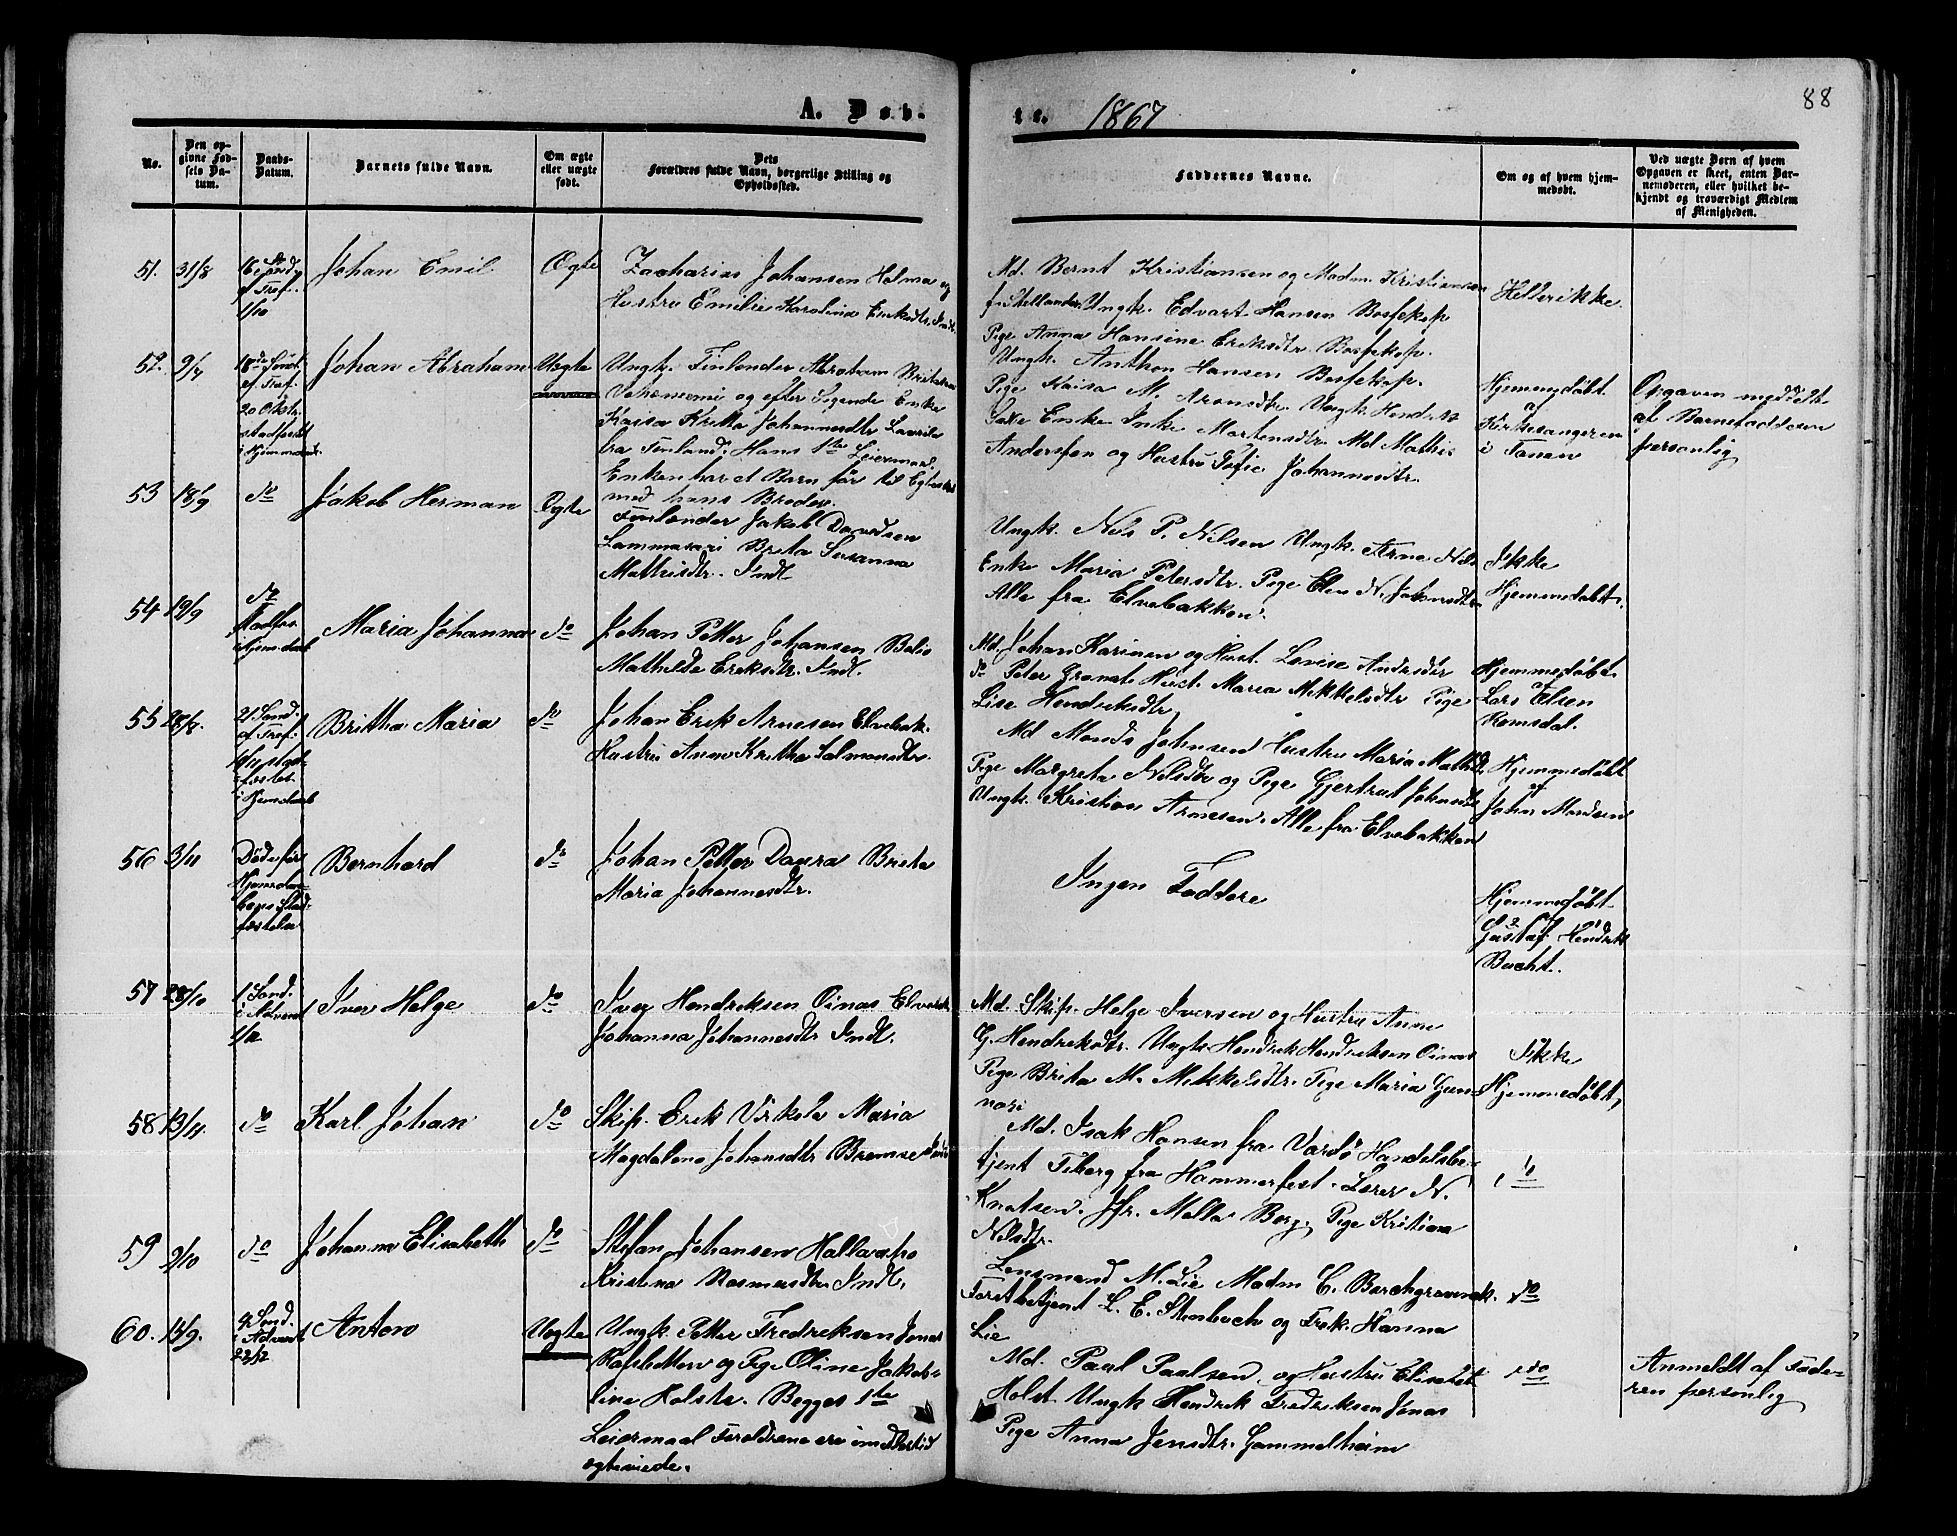 88
A. Døb-
te. 1867
No.
Den op-
givne Fød-
sels Da-
tum.
Daabs-
Datum.
Barnets fulde Navn.
Om ægte
eller uægte
født.
Dets
Forældres fulde Navn, borgerlige Stilling og
Opholdssted.
Faddernes Navne.
Om og af hvem hjem-
medøbt.
Ved uægte Børn af hvem
Opgaven er skeet, enten Bar-
nemoderen, eller hvilket be-
kjendt og troværdigt Medlem
af Menigheden.
51. 31/8
16de Sønd.
ef Tref.
1/10
Johan Emil
Ægte
Zacharias Johansen Holma og
Hustru Emilie Karolina Eriksdtr. Indl.
Md. Bernt Kristiansen og Madm. Kristiansen
Ungk. Edvart Hansen Bossekop
Pige Anna Hansine Eriksdtr. Bossekop.
Ungk. Anthon Hansen Bossekop.
Heller ikke
52. 2/7
18de Sønd.
ef Tref.
20 Oktr.
stadfestet
i Hjemmed.
Johan Abraham
Uægte
Ungk. Finlænder Abraham
og efter Sigende Enke
Kaisa Kritha Johannesdtr.
fra Finland. Hans 1ste Leiermaal.
Enken har et Barn før til Ægteskab
med hans Broder.
Pige Kaisa M. Aronsdtr. Ungk. Hendrik
Enke Inke Mortensdtr. Md Mathis
Andersen og Hustru Sofie Johannesdtr.
Hjemmedøbt
af
Kirkesangeren
i Tanen
Opgaven meddelt
af Barnefaderen
personlig
53 18/9
do
Jakob Herman
Ægte
Finlænder Jakob Davidsen
Lammasari Brita Susanna
Mathisdtr. Indl.
Ungk. Nils P. Nilsen Ungk. Arne Nils
Enke Maria Petersdtr. Pige Elen N. Johnsdtr.
Alle fra Elvebakken.
Ikke
Hjemmedøbt.
54 19/9
do
Stadfæs.
i Hjem.daab
Maria Johanna
do
Johan Petter Johansen Balio
Mathilde Eriksdtr. Indl.
Md. Johan Karinen og Hust. Lovise Andersdtr
do Peter Granst. Hust. Maria Mikkelsdtr Pige
Lise Hendriksdtr.
Hjemmedøbt
Lars Olsen
Romsdal.
55 28/8.
21 Sønd.
ef Tref.
stad-
fæstet
i Hjemdaab
Britha Maria
do
Johan Erik Arnesen Elvebak.
Hustru Anna Kritha Salmonsdtr.
Md Monds Johnsen Hustru Maria Mathisd.
Pige Margreta Nilsdtr og Pige Gjertrud Johnsdtr
Ungk. Kristian Arnesen. Alle fra Elvebakken
Hjemmedøbt
af
John Mondsen
56 3/11
Døde før
Hjemmedaa-
bens Stad-
fæstelse
Bernhard
do
Johan Petter Daura Brita
Maria Johannesdtr.
Ingen Faddere
Hjemmedøbt
af
Gustaf Hendrik
Bucht.
57 28/10
1 Sønd.
i Advent
1/12
Iver Helge
do
Iver Hendriksen Oinas Elvebak
Johanna Johannesdtr Indl.
Md. Skip. Helge Iversen og Hustru Anne
G. Hendriksdtr. Ungk Hendrik Hendriksen Oinas
Pige Brita M. Mikkelsdtr. Pige Maria Gun-
nari
Ikke
Hjemmedøbt,
58 13/11.
do
Karl Johan
do
Skip. Erik Virkola Maria
Magdalena Johansdtr Bremse
Md. Isak Hansen fra Vardø Handelsbe-
tjent Fiborg fra Hammerfest. Lærer N.
Knutsen. Jfr. Malla Berg. Pige Kristiana
Nilsdtr.
do
59 2/10
do
Johanna Elisabeth
do
Stefan Johansen Hallavaho
Kristina Rasmusdtr Indl,
Lensmand M. Lie Madm C. Borchgrevink.
Forstbetjent L. E. Stenbuch og Frøk. Hanna
Lie
do
60. 14/9.
4 Sønd.
i Advent
22/12
Anton
Uægte
Ungk. Petter Fredriksen Jonas
Rafsbotten og Pige Oline Jakob-
line Holste. Begges 1ste
Leiermaal Forældrene ere imidlertid
ægteviede.
Md. Paul Paulsen og Hustru Elisabet
Holst Ungk Hendrik Fredriksen Jonas
Pige Anna Jensdtr. Gammelheim
do
Anmeldt af Fade-
ren personlig